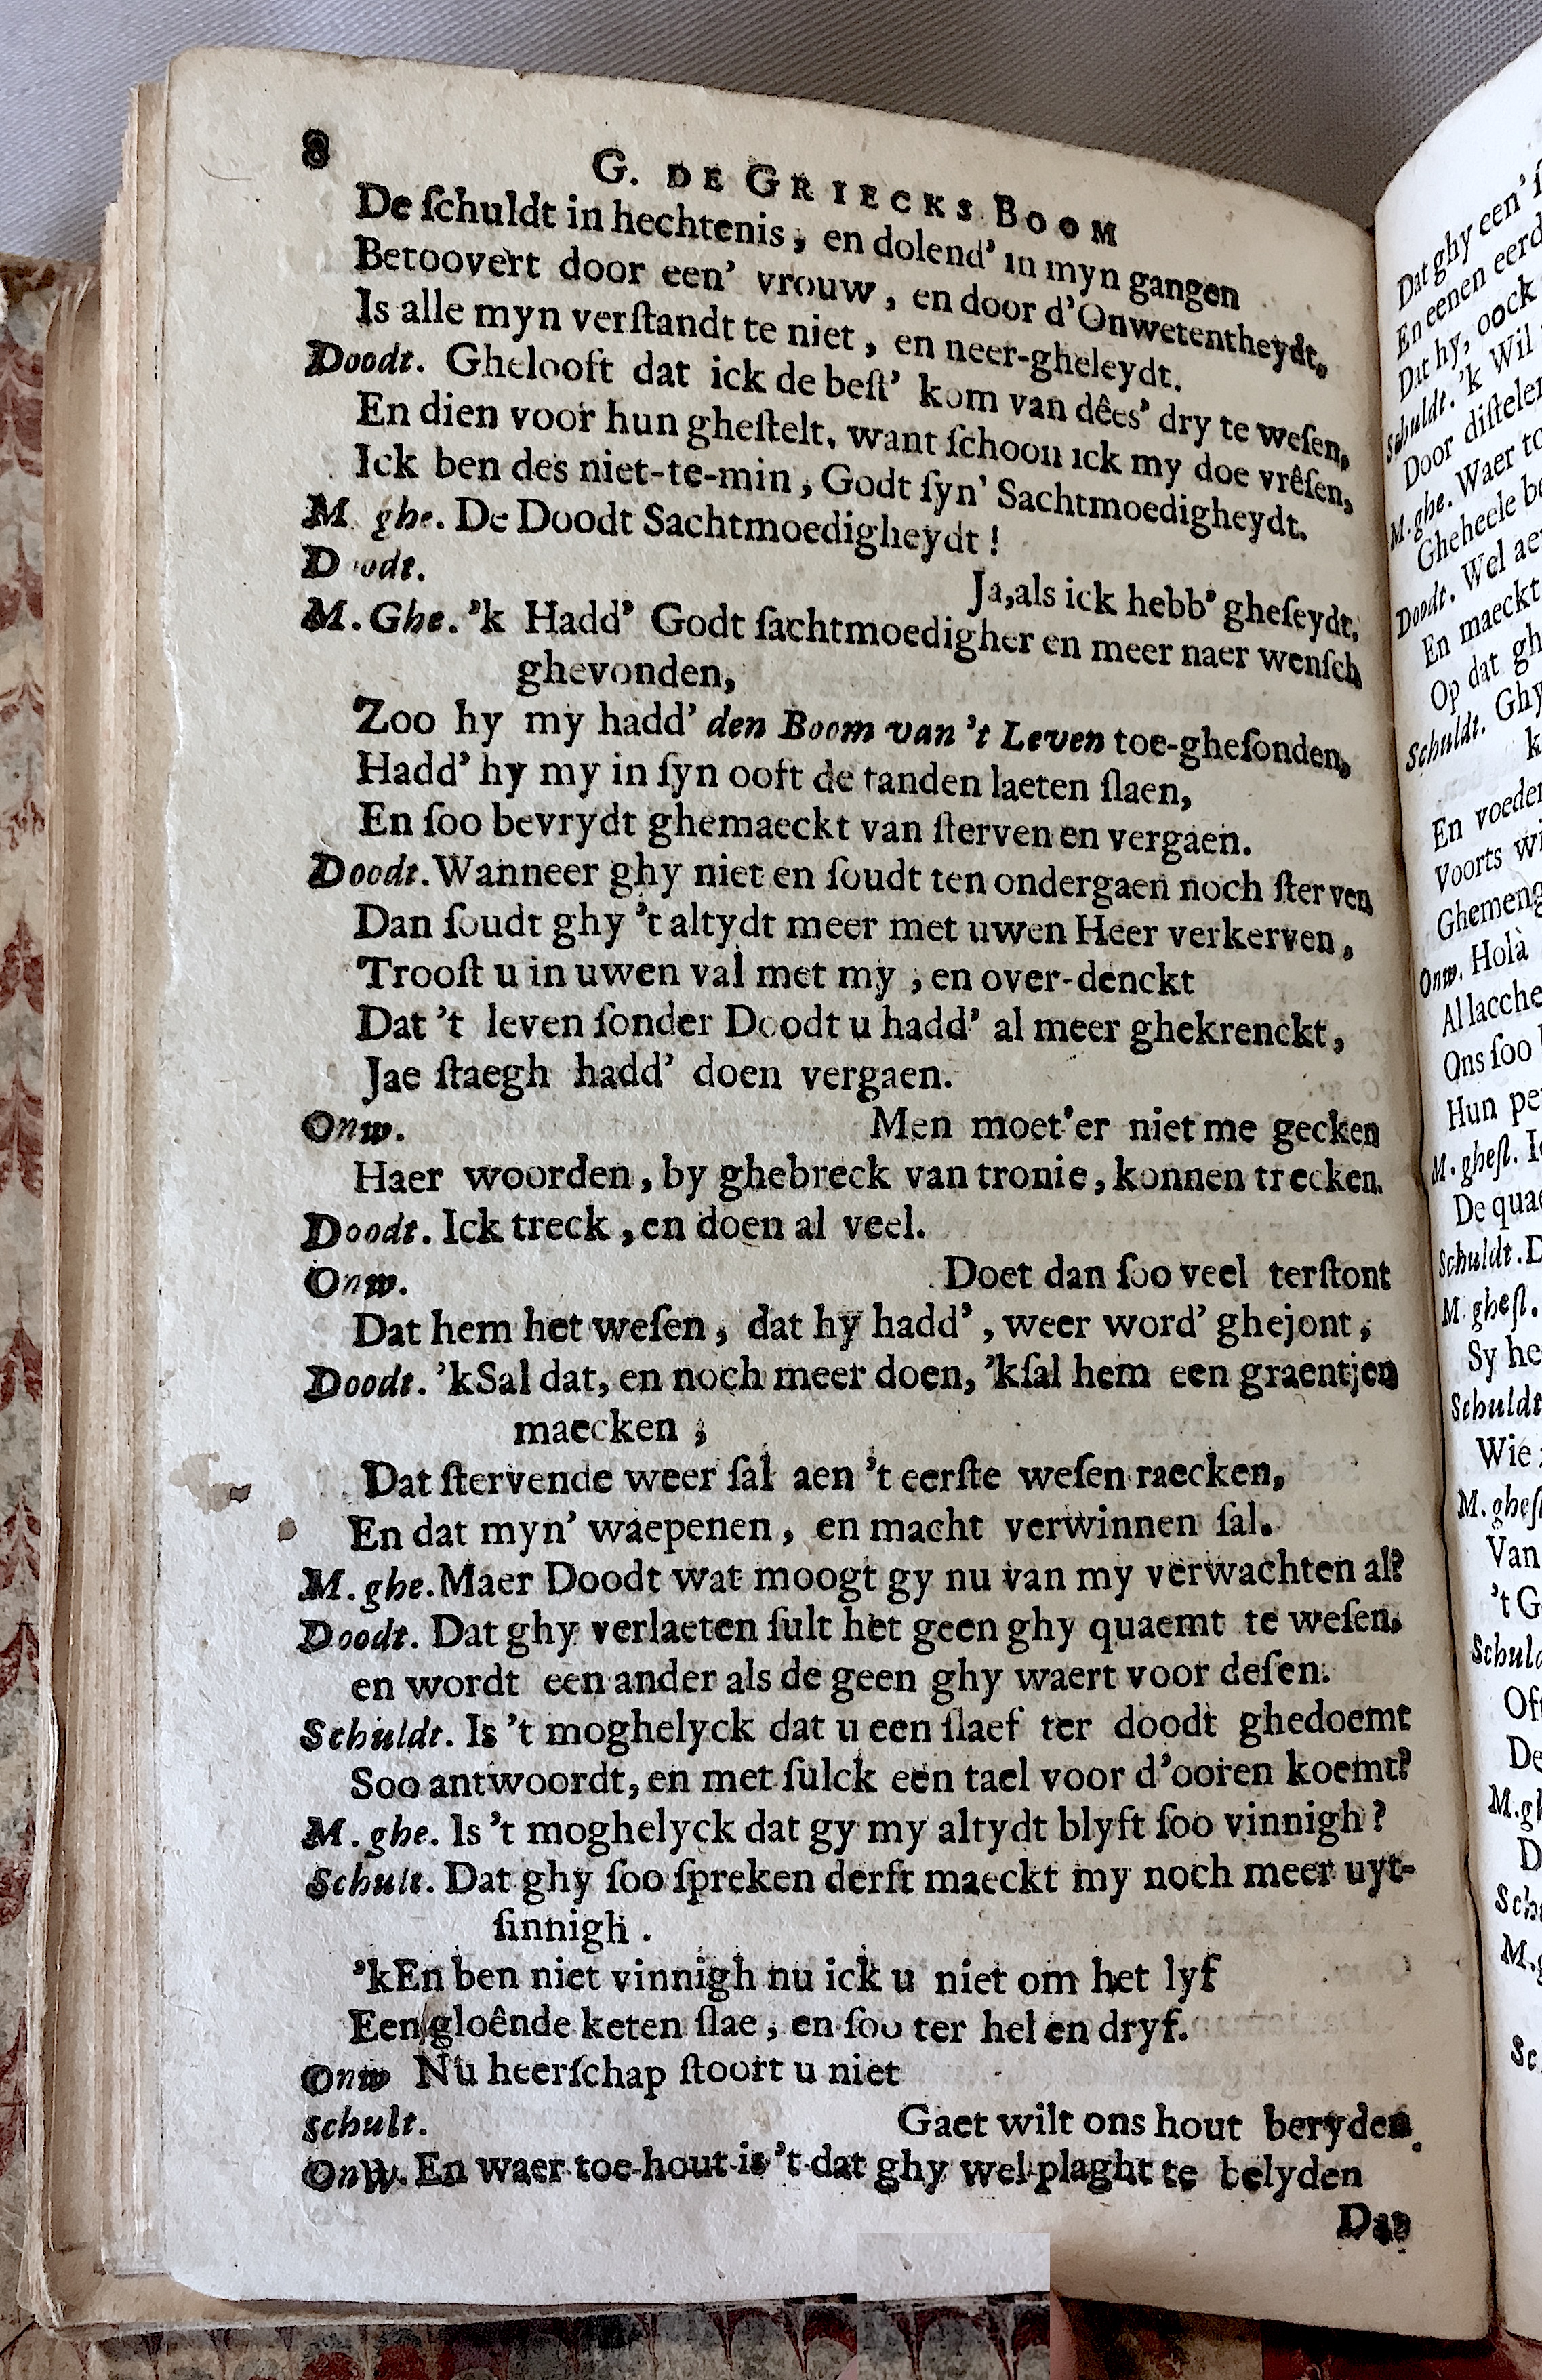 8 G. DE GRIECKS BOOM
De ſchuldt in hechtenis, en dolend' in myn gangen
Betoovert door een' vrouw, en door d'Onwetentheydt.
Is alle myn verſtandt te niet, en neer-gheleydt.
Doodt. Ghelooft dat ick de beſt' kom van dêes' dry te weſen,
En dien voor hun gheſtelt, want ſchoon ick my doe vrêſen,
Ick ben des niet-te-min, Godt ſyn' Sachtmoedigheydt.
M. ghe. De Doodt Sachtmoedigheydt!
Doodt. Ja, als ick hebb' gheſeydt.
M. Ghe. 'k Hadd' Godt ſachtmoedigher en meer naer wenſch
ghevonden,
Zoo hy my hadd' den Boom van 't Leven toe-gheſonden,
Hadd' hy my in ſyn ooft de tanden laeten ſlaen,
En ſoo bevrydt ghemaeckt van ſterven en vergaen.
Doodt. Wanneer ghy niet en ſoudt ten ondergaen noch ſterven
Dan ſoudt ghy 't altydt meer met uwen Heer verkerven,
Trooſt u in uwen val met my, en over-denckt
Dat 't leven ſonder Doodt u hadd' al meer ghekrenckt,
Jae ſtaegh hadd' doen vergaen.
Onw. Men moet'er niet me gecken
Haer woorden, by ghebreck van tronie, konnen trecken.
Doodt. Ick treck, en doen al veel.
Onw. Doet dan ſoo veel terſtont
Dat hem het weſen, dat hy hadd', weer word' ghejont,
Doodt. 'kSal dat, en noch meer doen, 'kſal hem een graentjen
maecken;
Dat ſtervende weer ſal aen 't eerſte weſen raecken,
En dat myn' waepenen, en macht verwinnen ſal.
M. ghe. Maer Doodt wat moogt gy nu van my verwachten al?
Doodt. Dat ghy verlaeten ſult het geen ghy quaemt te weſen,
en wordt een ander als de geen ghy waert voor deſen.
Schuldt. Is 't moghelyck dat u een ſlaef ter doodt ghedoemt
Soo antwoordt, en met ſulck een tael voor d'ooren koemt?
M. ghe. Is 't moghelyck dat gy my altydt blyft ſoo vinnigh?
Schult. Dat ghy ſoo ſpreken derft maeckt my noch meer uyt-
ſinnigh.
'kEn ben niet vinnigh nu ick u niet om het lyf
Een gloênde keten ſlae, en ſoo ter hel en dryf.
Onw Nu heerſchap ſtoort u niet
schult. Gaet wilt ons hout beryden.
Onw. En waer toe hout is 't dat ghy wel plaght te belyden
Dat ghy een'
En eenen eerd
Dat hy, oock
Schuldt. 'k Wil
Door diſtelen
M. ghe. Waer to
Gheheele be
Doodt. Wel ae
En maeckt
Op dat gh
Schuldt. Ghy
k
En voeden
Voorts wi
Ghemeng
Onw. Holà
Al lacche
Ons ſoo
Hun pe
M. gheſt. I
De quae
Schuldt. D
M. gheſt.
Sy he
Schuldt
Wie
M. gheſ
Van
't G
Schuld
Of
De
M.gh
D
Sch
M.
Sc